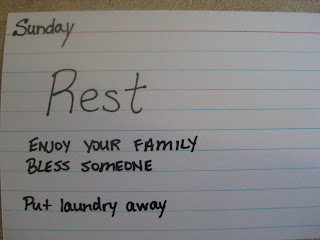 Sunday
Rest
ENJOY YOUR FAMILY
BLESS SOMEONE
Put laundry away